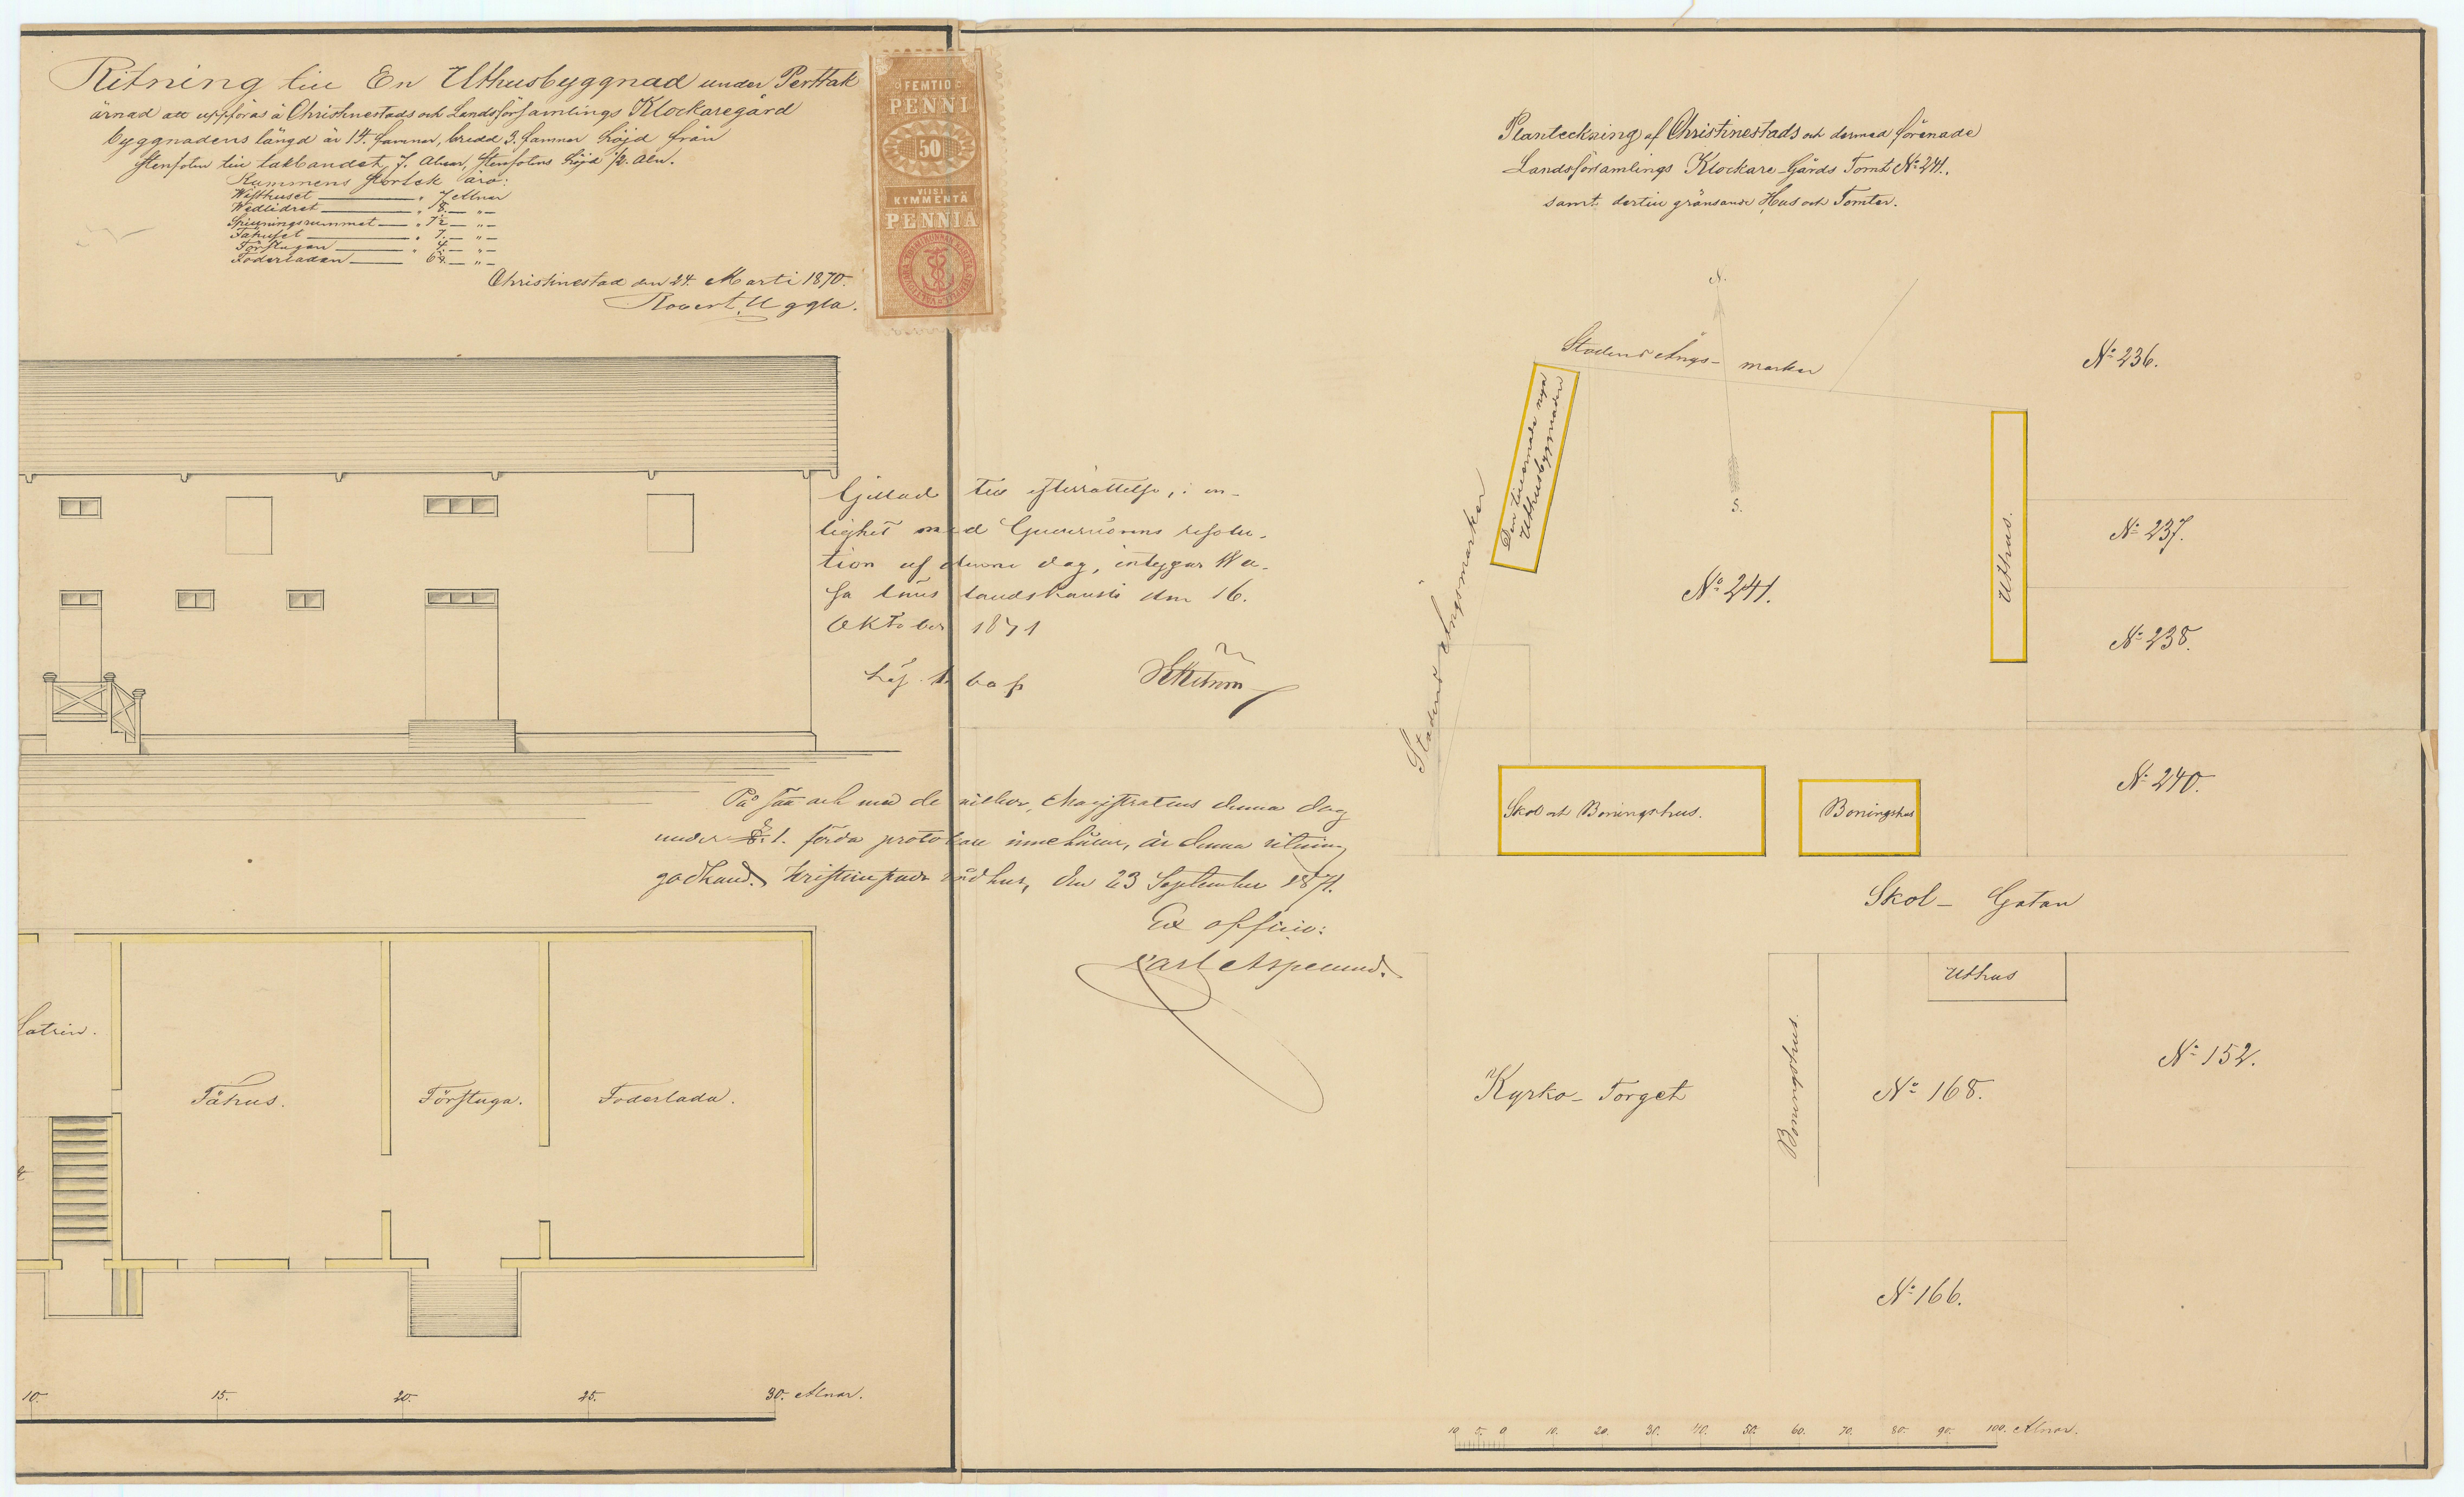 Ritning till En Uthusbyggnad under Perttak
ärnad att uppföras å Christinestads och Landsförsamlings Klockaregård
byggnadens längd är 14. famnar, bredd 3. famnar höjd från
stenfoten till takbandet 7. Alnar, stenfotens höjd ½. Aln.
Rummens storlek äro:
Wisthuset " 7 Alnar
Wedlidret " 8. — " —
" 7½ — " —
Fähuset " 7. — " —
Förstugan " 4. — " —
Foderladan — " —
Christinestad den 24. Marti 1870.
Robert. Uggla.
FEMTIO
PENNI
50
VIISI
KYMMENTÄ
PENNIÄ
Gillad till efterrättelse, i en-
lighet med Guvernörens resolu-
tion af denna dag, intygar Wa-
sa läns landskansli den 16.
Oktober 1871
På sätt och med de vilkor, Magistratens denna dag
under §. 1. förda protokoll innehåller, är denna ritning
godkänd. Kristinestads rådhus, den 23 September 1871.
Ex officio:
Carl Asplund.
Latrin.
Fähus.
Förstuga.
Foderlada.
10. 15. 20. 25. 30. Alnar.
Planteckning af Christinestads och dermed förenade
Landsförsamlings Klockare-Gårds Tomt No 241.
samt dertill gränsande Hus och Tomter.
N.
Stadens Ängs- marker
S.
Den tillernade nya
Uthusbyggnaden
Stadens Ängsmarker
Uthus.
No 236.
No 237.
No 238.
No 240.
No 241.
Skol och Boningshus.
Boningshus
Skol- Gatan
Uthus
Boningshus.
Kyrko- Torget
No 168.
No 152.
No 166.
10 5. 0 10. 20. 30. 40. 50. 60. 70. 80. 90. 100. Alnar.